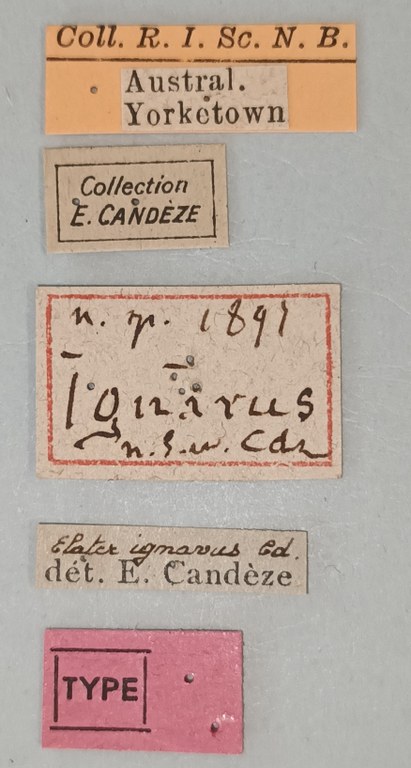 Coll. R. I. Sc. N. B.
Austral.
Yorketown
Collection
E. CANDÈZE
n. sp. 1891
Ignavus
n. S. W. Cdz
Elater ignavus Cd.
dét. E. Candèze
TYPE